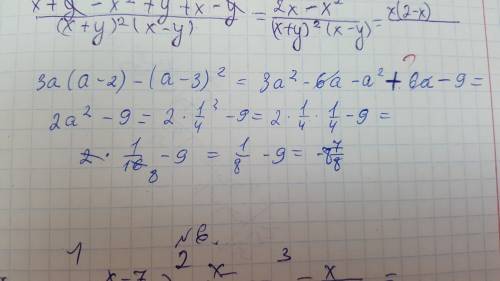 x+y-x²+y+x-y / (x+y)²(x-y) = 2x-x² / (x+y)²(x-y) = x(2-x)
?
3a(a-2)-(a-3)² = 3a²-6a-a²+6a-9=
2a²-9=2·1/4²-9=2·1/4·1/4-9=
2·1/16 8-9=1/8-9=-8 7/8
№6.
1 2 3
x-7 x - x =